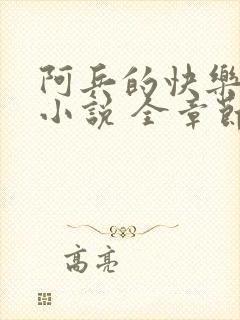 阿兵的快樂
小說 全章節
高亮